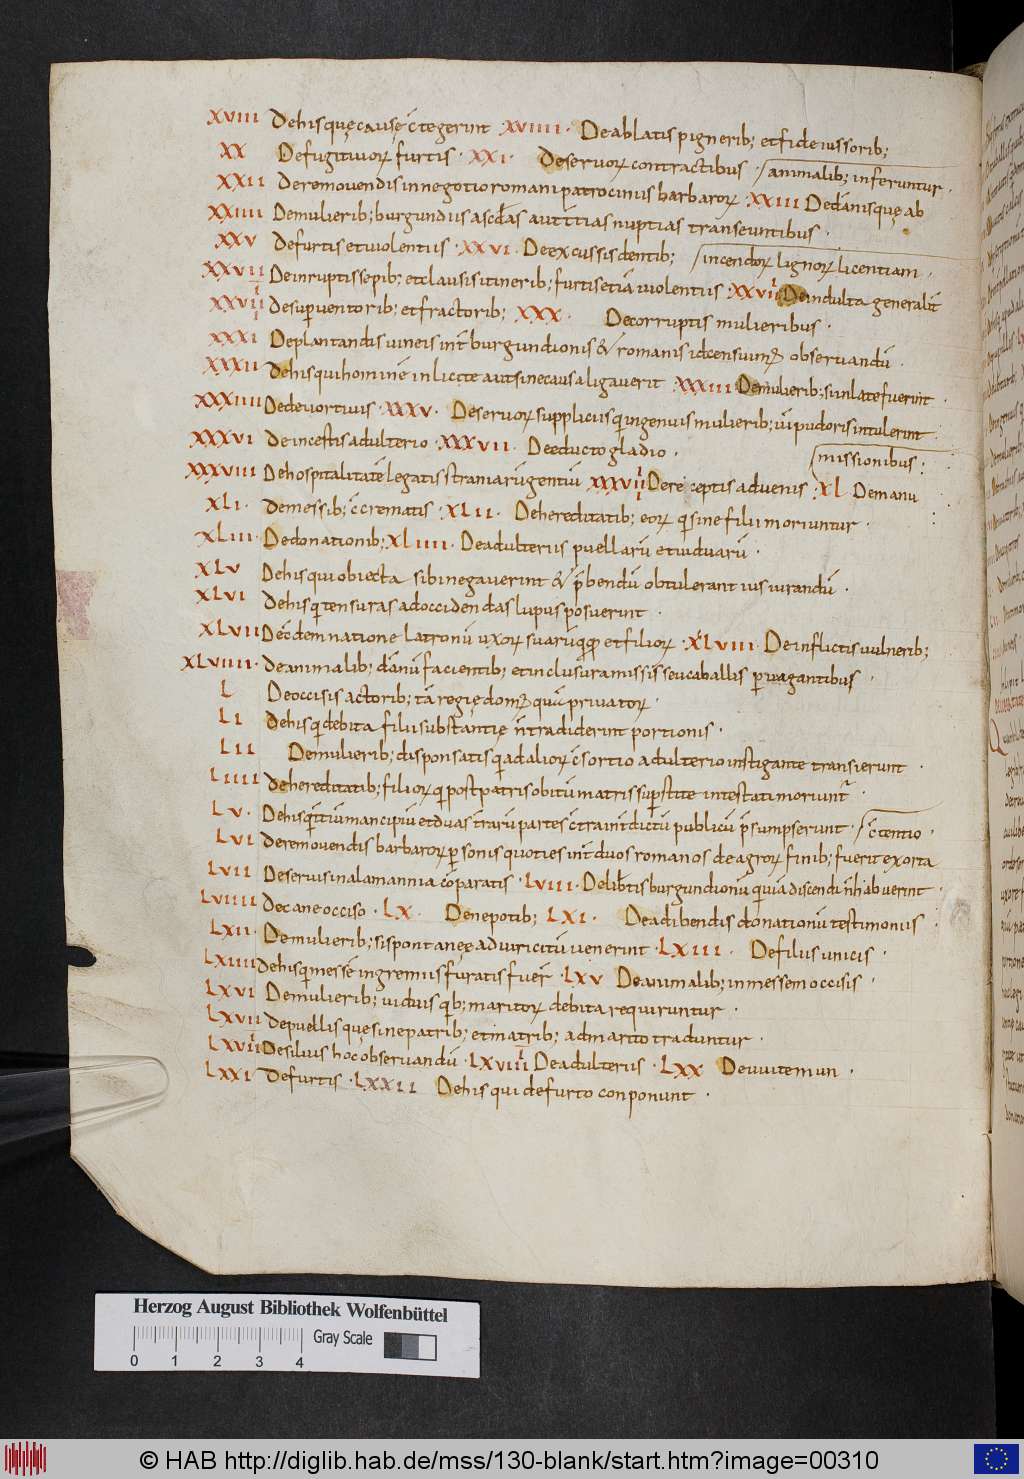 XVIII Dehisquę causę c̄tegerint · XVIIII · Deablatis pignerib; etfideiussorib;
XX Defugitiuorꝝ furtis · XXI · Deseruorꝝ contractibus · animalib; inferuntur ·
XXII Deremouendis innegotio romani patrociniis barbarorꝝ · XXIII Dedānisquę ab
XXIIII Demulierib; burgundiis
aut
nuptias transeuntibus ·
XXV Defurtis etuiolentiis · XXVI · Deexcussis dentib; incendorꝝ lignorꝝ licentiam ·
XXVII Deinruptis sepib; etclausis itinerib; furtis etiā uiolentiis · XXVIII Deindulta generalit̄
XXVIIII Desuperuentorib; etfractorib; XXX · Decorruptis mulieribus ·
XXXI Deplantandis uineis int̄ burgundionis & romanis idcensuimꝰ obseruandū ·
XXXII Dehis quihominē inlicite autsinecausa ligauerit · XXXIII Demulierib; siinlatefuerint ·
XXXIIII Dedeuortiuis · XXXV · Deseruorꝝ suppliciis qͥ ingenuis mulierib; uim̄ pudoris intulerint
XXXVI Deincestis adulterio · XXXVII · Deeducto gladio · missionibus ·
XXXVIII Dehospitalitatē legatis straniarū gentiū XXXVIIII Dere ceptis aduenis · XL Demanu
XLI · Demessib; c̄crematis · XLII · Dehereditatib; eorꝝ qͥ sine filii moriuntur ·
XLIII Dedonationib; XLIIII · Deadulteriis puellarū etuiduarū ·
XLV Dehis quiobiecta sibi negauerint & p̄bendū obtulerant iusiurandū ·
XLVI Dehis qͥ tensuras adoccidendas lupus posuerint ·
XLVII Dec̄demnatione latronū uxorꝝ suarūqꝫ etfiliorꝝ · XLVIII · Deinflictis uulnerib;
XLVIIII · Deanimalib; dānū facientib; etinclusura missis seucaballis peruagantibus ·
L Deoccisis actorib; tā regię domꝰ quā priuatorꝝ ·
LI Dehis qͥ debita filii substantię n̄ tradiderint portionis ·
LII Demulierib; disponsatis qͥ adaliorꝝ c̄sortio adulterio instigante transierunt ·
LIIII Dehereditatib; filiorꝝ qͥ postpatris obitū matris superstite intestati moriunt̄ ·
LV · Dehis qͥ titiū mancipiū etduas t̄rarū partes c̄train̄dictū publicū p̄sumpserunt · c̄tentio ·
LVI Deremouendis barbarorꝝ personis quoties int̄ duos romanos deagrorꝝ finib; fuerit exorta
LVII Deseruis inalamannia cōparatis · LVIII · Delib̄tis burgundionū
discendi n̄ habuerint ·
LVIIII Decane occiso · LX · Denepotib; LXI · Deadibendis donationū testimoniis
LXII · Demulierib; sispontaneę aduiricitū uenerint · LXIII · Defiliis unicis ·
LXIIII Dehis qͥ messē ingremiis furatis fuer̄ · LXV Deanimalib; inmessem occisis ·
LXVI Demulierib; uiduis qͥb; maritorꝝ debita requiruntur ·
LXVII Depuellis quę sine patrib; etmatrib; admarito traduntur ·
LXVIII Desiluis hoc obseruandū · LXVIIII Deadulteriis · LXX Deuuitemun ·
LXXI Defurtis · LXXII Dehis qui defurto conponunt ·
Herzog August Bibliothek Wolfenbüttel
Gray Scale
0 1 2 3 4
© HAB http://diglib.hab.de/mss/130-blank/start.htm?image=00310